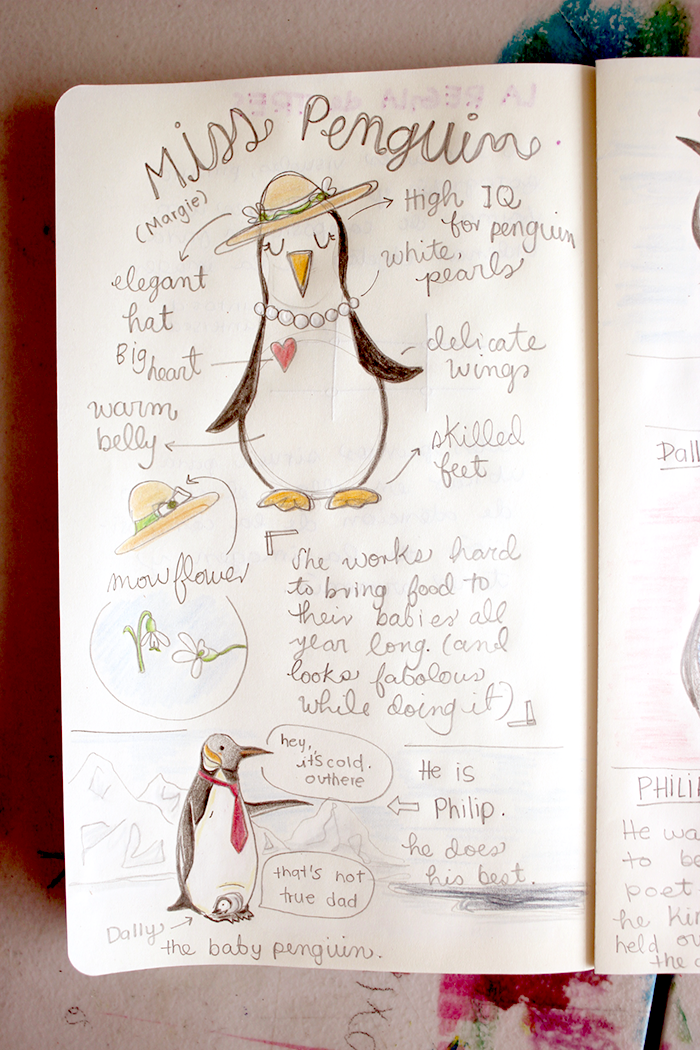 Miss Penguin.
(Margie)
High IQ
for penguin
white
pearls
elegant
hat
Big heart
delicate
wings
warm
belly
skilled
feet
snowflower
She works hard
to bring food to
their babies all
year long. (and
looks fabolous
while doing it)
hey,
it's cold.
outhere
He is
Philip.
he does
his best.
that's not
true dad
Dally
the baby penguin.
Dall
PHILI
He wa
to be
poet
he kin
held ou
the